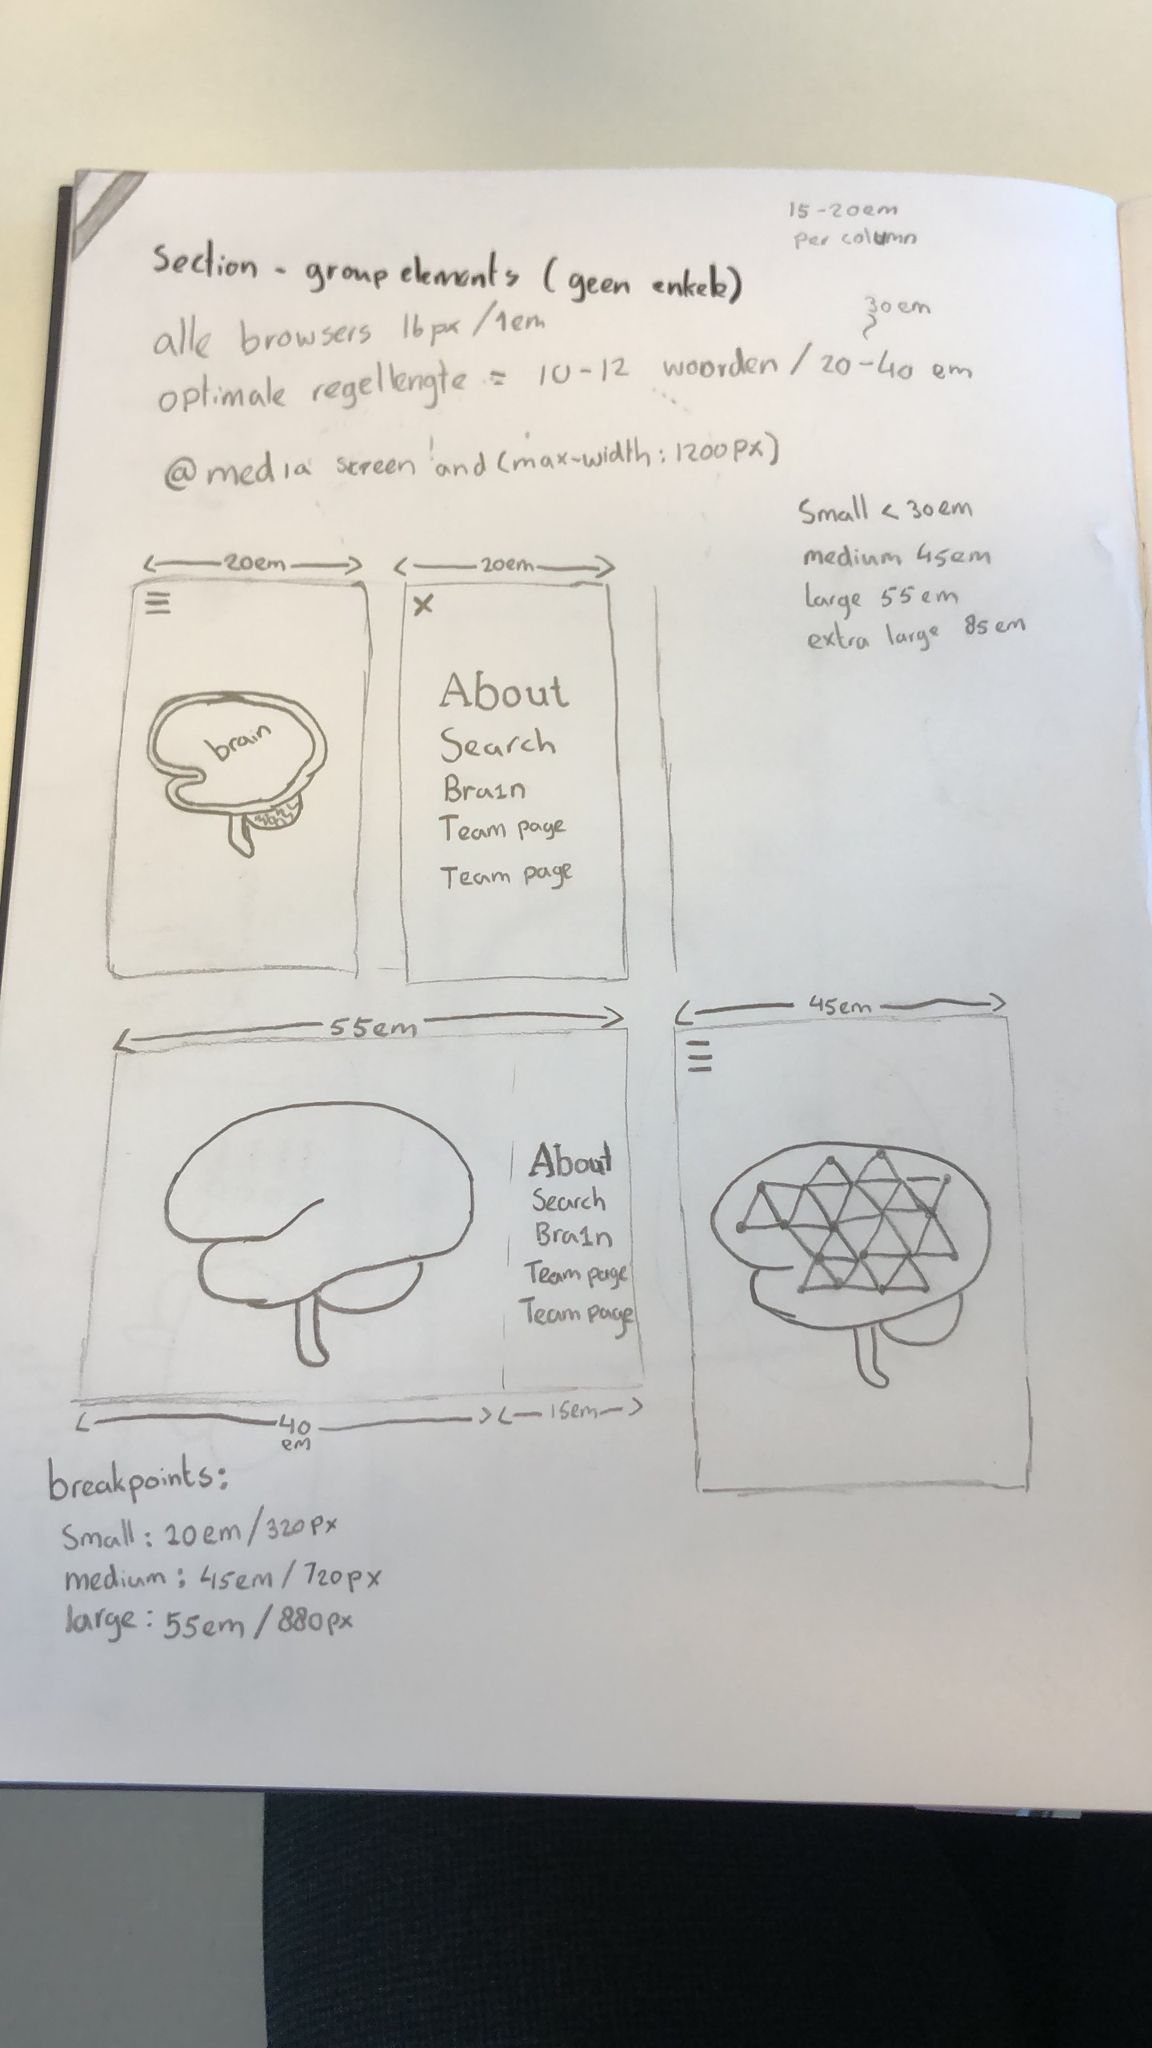 15-20em
per column
Section - group elements (geen enkele)
alle browsers 16px/1em
30em
optimale regellengte = 10-12 woorden / 20-40 em
@media screen and (max-width: 1200px)
Small < 30em
medium 45em
large 55em
extra large 85em
20em
20em
X
brain
About
Search
Bra1n
Team page
Team page
55em
45em
About
Search
Bra1n
Team page
Team page
40
em
15em
breakpoints:
Small: 20em/320px
medium: 45em/720px
large: 55em/880px